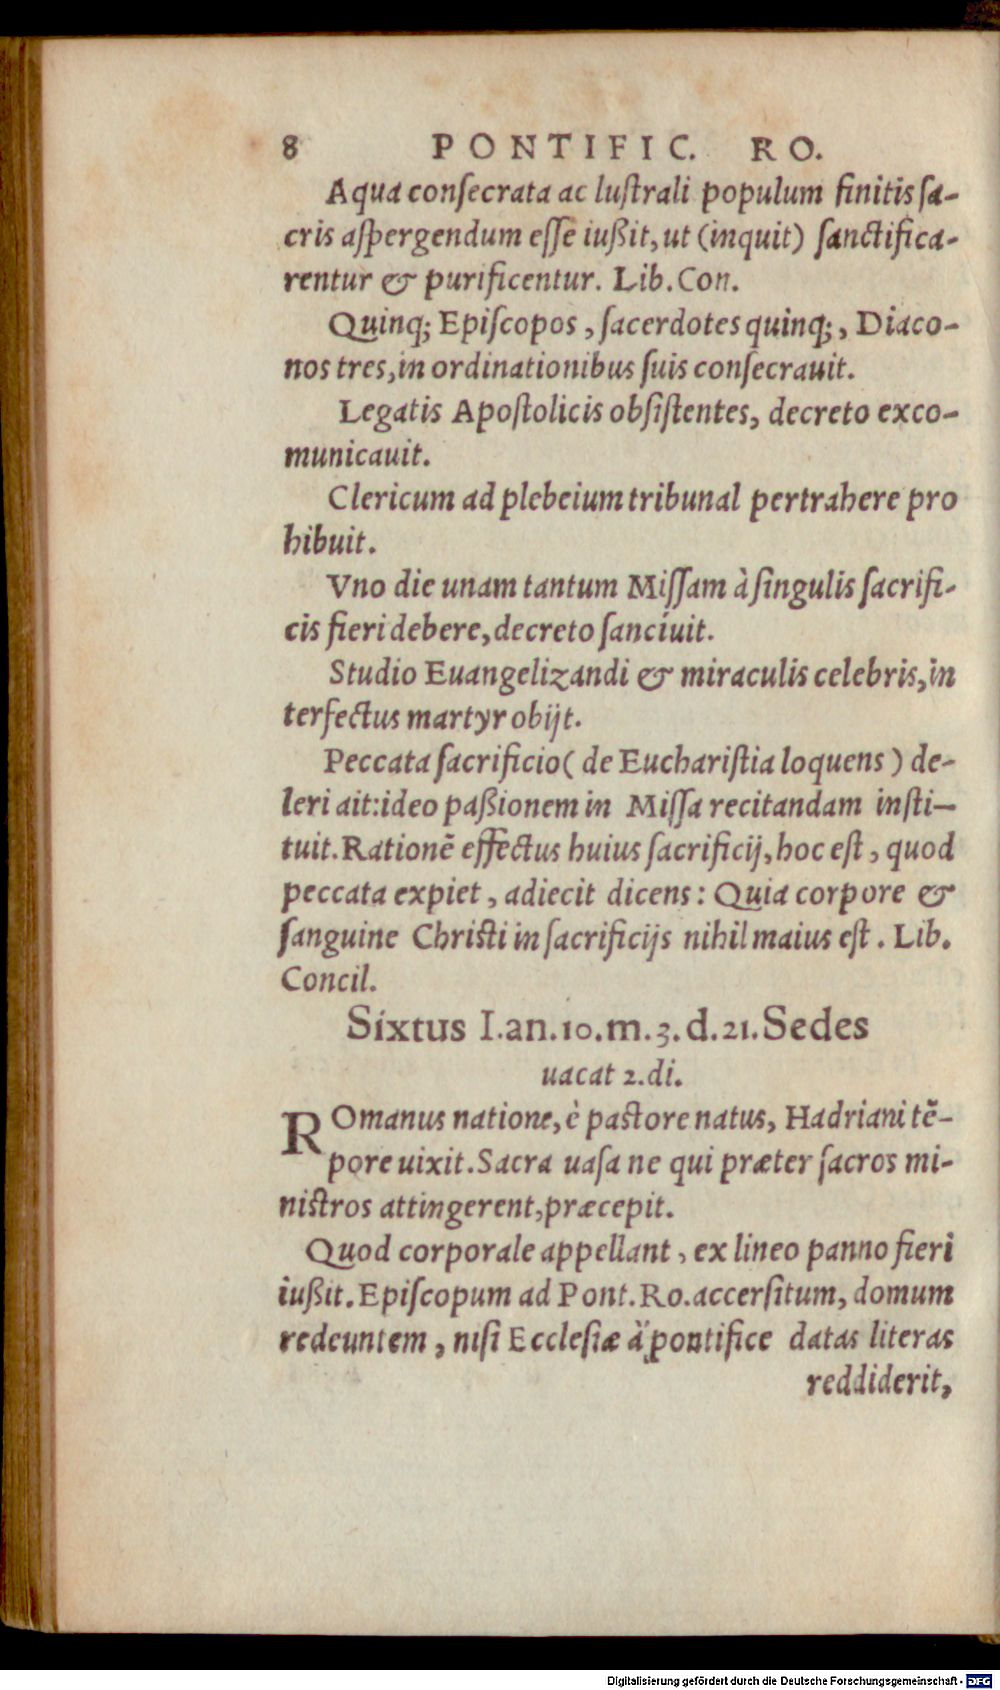 8 PONTIFIC. RO.
Aqua conſecrata ac luſtrali populum finitis ſa-
cris aſpergendum eſſe iußit, ut (inquit) ſanctifica-
rentur & purificentur. Lib. Con.
Quinq; Epiſcopos, ſacerdotes quinq;, Diaco-
nos tres, in ordinationibus ſuis conſecrauit.
Legatis Apoſtolicis obſiſtentes, decreto exco-
municauit.
Clericum ad plebeium tribunal pertrahere pro
hibuit.
Vno die unam tantum Miſſam à ſingulis ſacrifi-
cis fieri debere, decreto ſanciuit.
Studio Euangelizandi & miraculis celebris, in
terfectus martyr obijt.
Peccata ſacrificio (de Euchariſtia loquens) de-
leri ait: ideo paßionem in Miſſa recitandam inſti-
tuit. Rationẽ effectus huius ſacrificij, hoc eſt, quod
peccata expiet, adiecit dicens: Quia corpore &
ſanguine Chriſti in ſacrificijs nihil maius eſt. Lib.
Concil.
Sixtus I. an. 10. m. 3. d. 21. Sedes
uacat 2. di.
ROmanus natione, è paſtore natus, Hadriani tẽ-
pore uixit. Sacra uaſa ne qui præter ſacros mi-
niſtros attingerent, præcepit.
Quod corporale appellant, ex lineo panno fieri
iußit. Epiſcopum ad Pont. Ro. accerſitum, domum
redeuntem, niſi Eccleſiæ à pontifice datas literas
reddiderit,
Digitalisierung gefördert durch die Deutsche Forschungsgemeinschaft - DFG